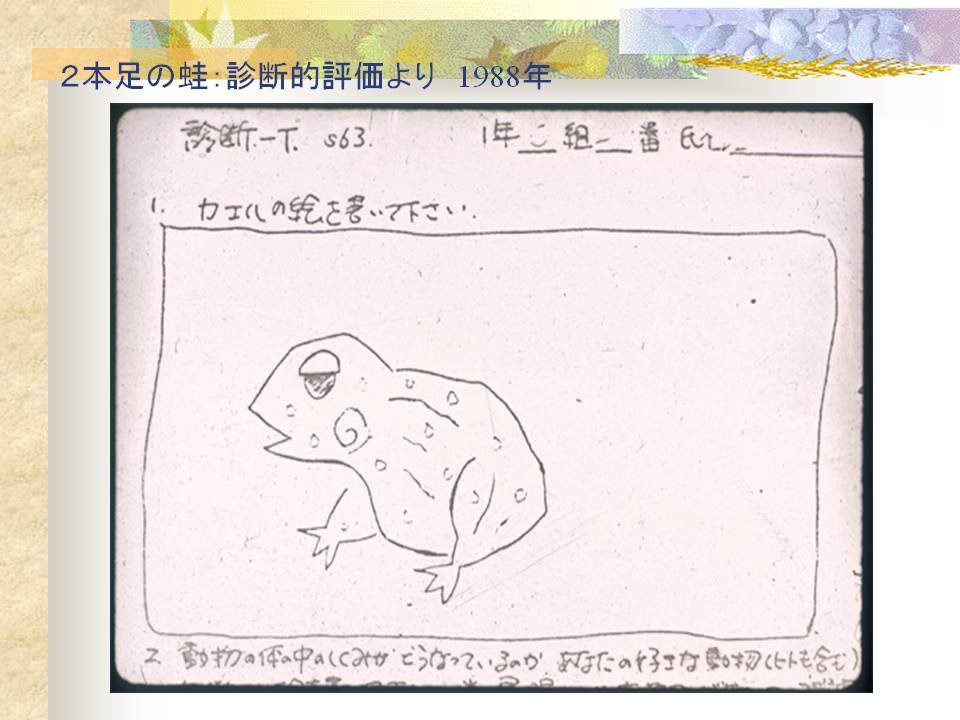 ２本足の蛙：診断的評価より　1988年
診断テ-T. S63.　1年 組 番 氏
1. カエルの絵を書いて下さい.
2. 動物の体の中のしくみが どうなっているのか あなたの好きな動物(ヒトも含む)